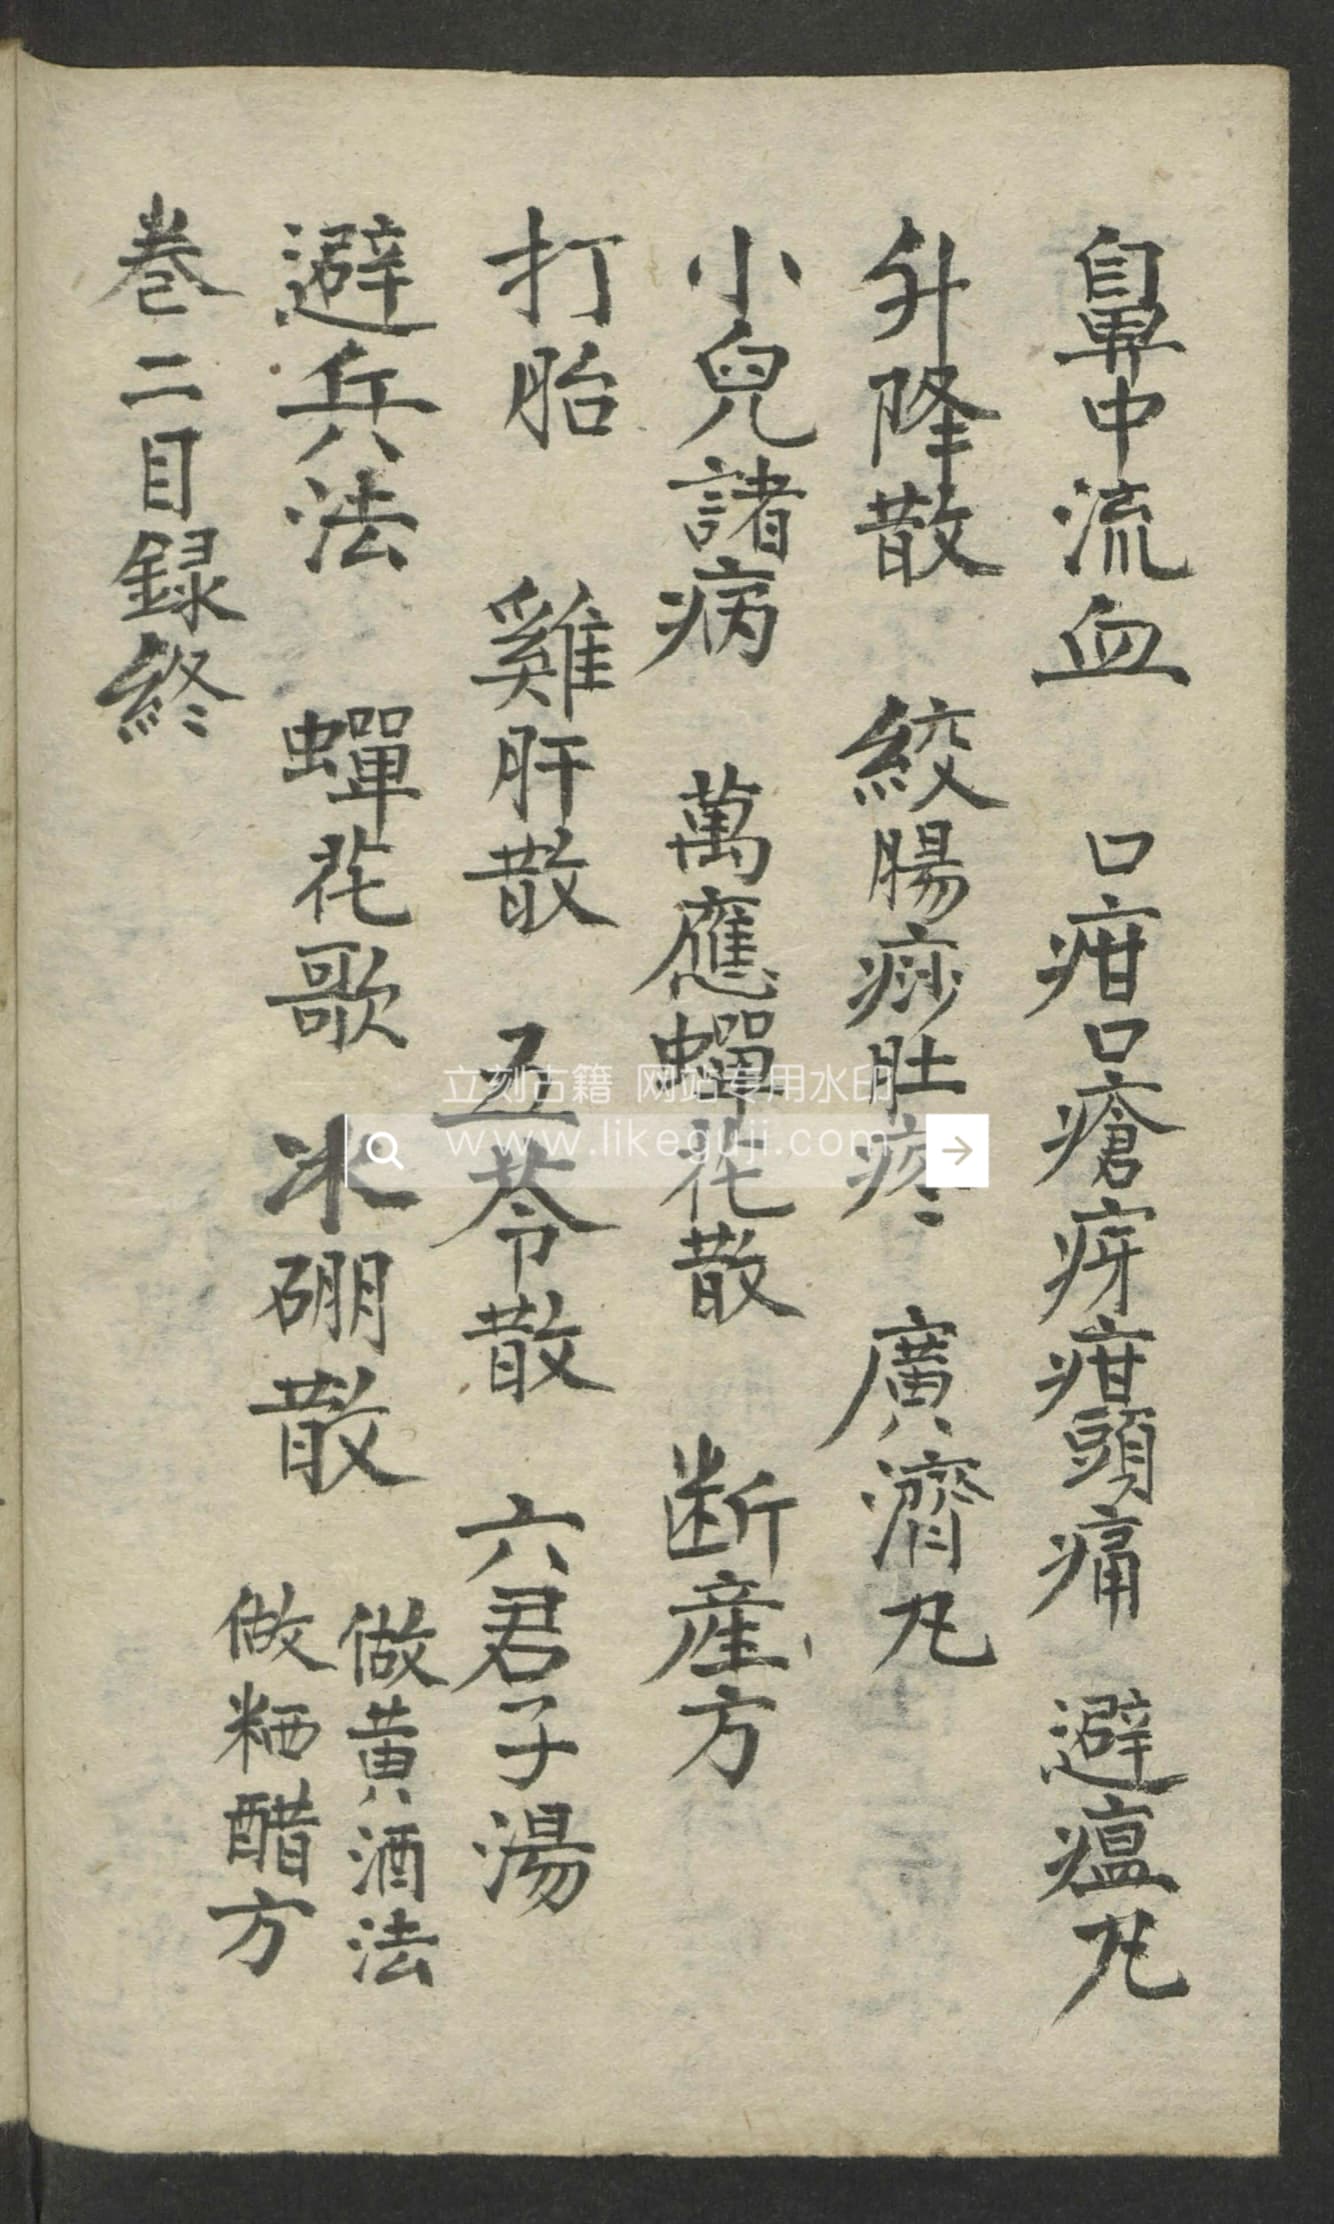 鼻中流血　口疳口瘡疨疳頭痛　避瘟丸
升降散　絞腸痧肚疼　廣濟丸
小兒諸病　萬應蟬花散　断產方
打胎　雞肝散　五苓散　六君子湯
避兵法　蟬花歌　冰硼散　做黄酒法
做粞醋方
卷二目録終
立刻古籍 网站专用水印
www.likeguji.com